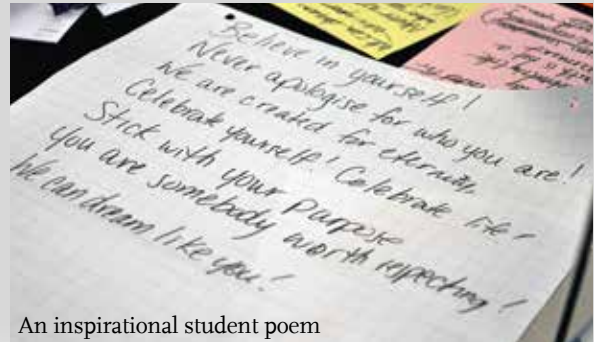 Believe in yourself!
Never apologise for who you are!
We are created for eternity
Celebrate yourself! Celebrate life!
Stick with your purpose
You are somebody worth respecting!
We can dream like you!
An inspirational student poem